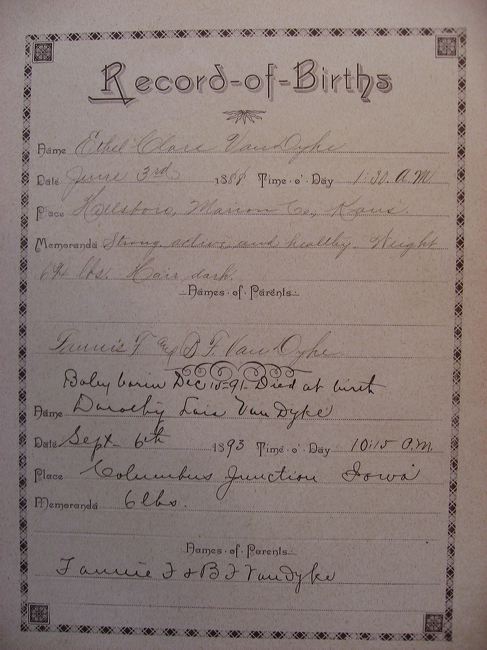 Record-of-Births
Name Ethel Clare VanDyke
Date June 3rd 1889 Time o' Day 1:30 A.M.
Place Hillsboro, Marion Co., Kans.
Memoranda Strong, active and healthy. Weight
lbs. Hair dark.
Names of Parents
Fannie F. & B. F. VanDyke
Baby born Dec 15-91. Died at birth
Name Dorothy Lois VanDyke
Date Sept 6th 1893 Time o' Day 10:15 P.M.
Place Columbus Junction Iowa
Memoranda 6 lbs.
Names of Parents
Fannie F & B F VanDyke